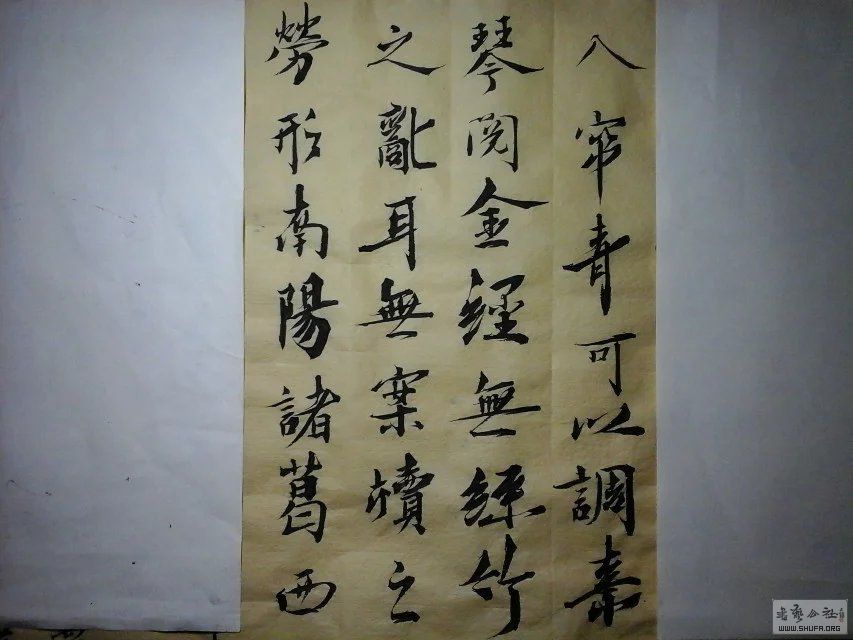 入帘青可以調素
琴閱金經無絲竹
之亂耳無案牘之
勞形南陽諸葛西
WWW.SHUFA.ORG